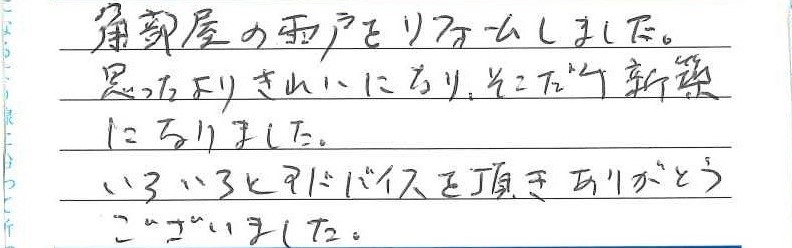 角部屋の雨戸をリフォームしました。
思ったよりきれいになり、そこだけ新築
になりました。
いろいろとアドバイスを頂きありがとう
ございました。